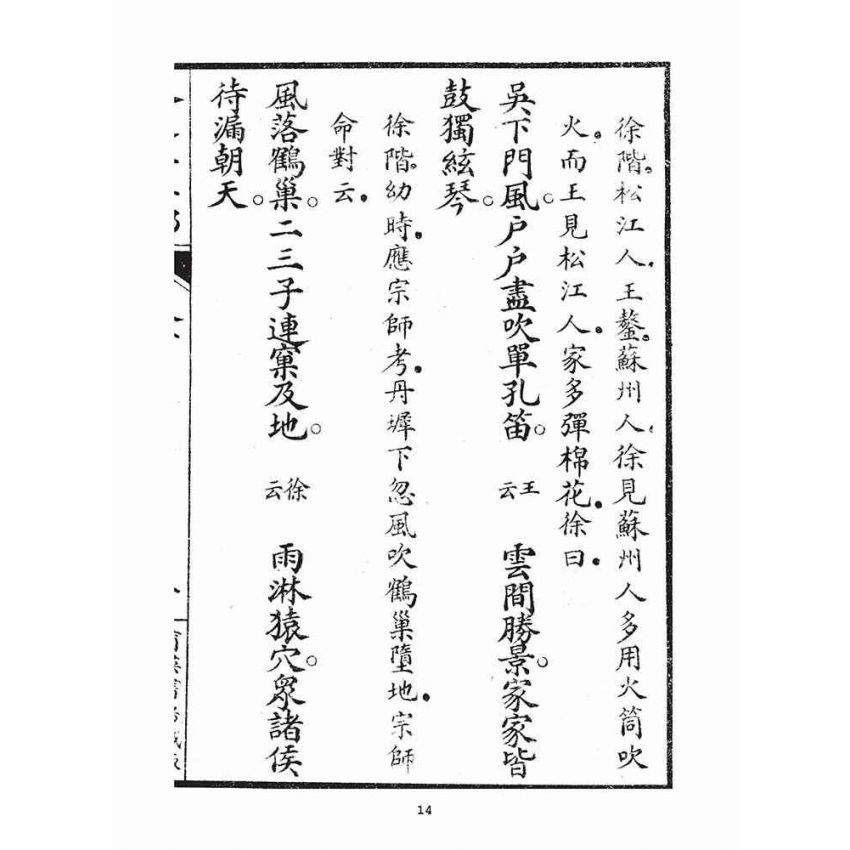 徐階。松江人。王鏊。蘇州人。徐見蘇州人多用火筒吹
火。而王見松江人。家多彈棉花。徐曰。
吳下門風。户户盡吹單孔笛。王云 雲間勝景。家家皆
鼓獨絃琴。
徐階。幼時。應宗師考。丹墀下忽風吹鶴巢墮地。宗師
命對云。
風落鶴巢。二三子連窠及地。徐云 雨淋猿穴。衆諸侯
待漏朝天。
14